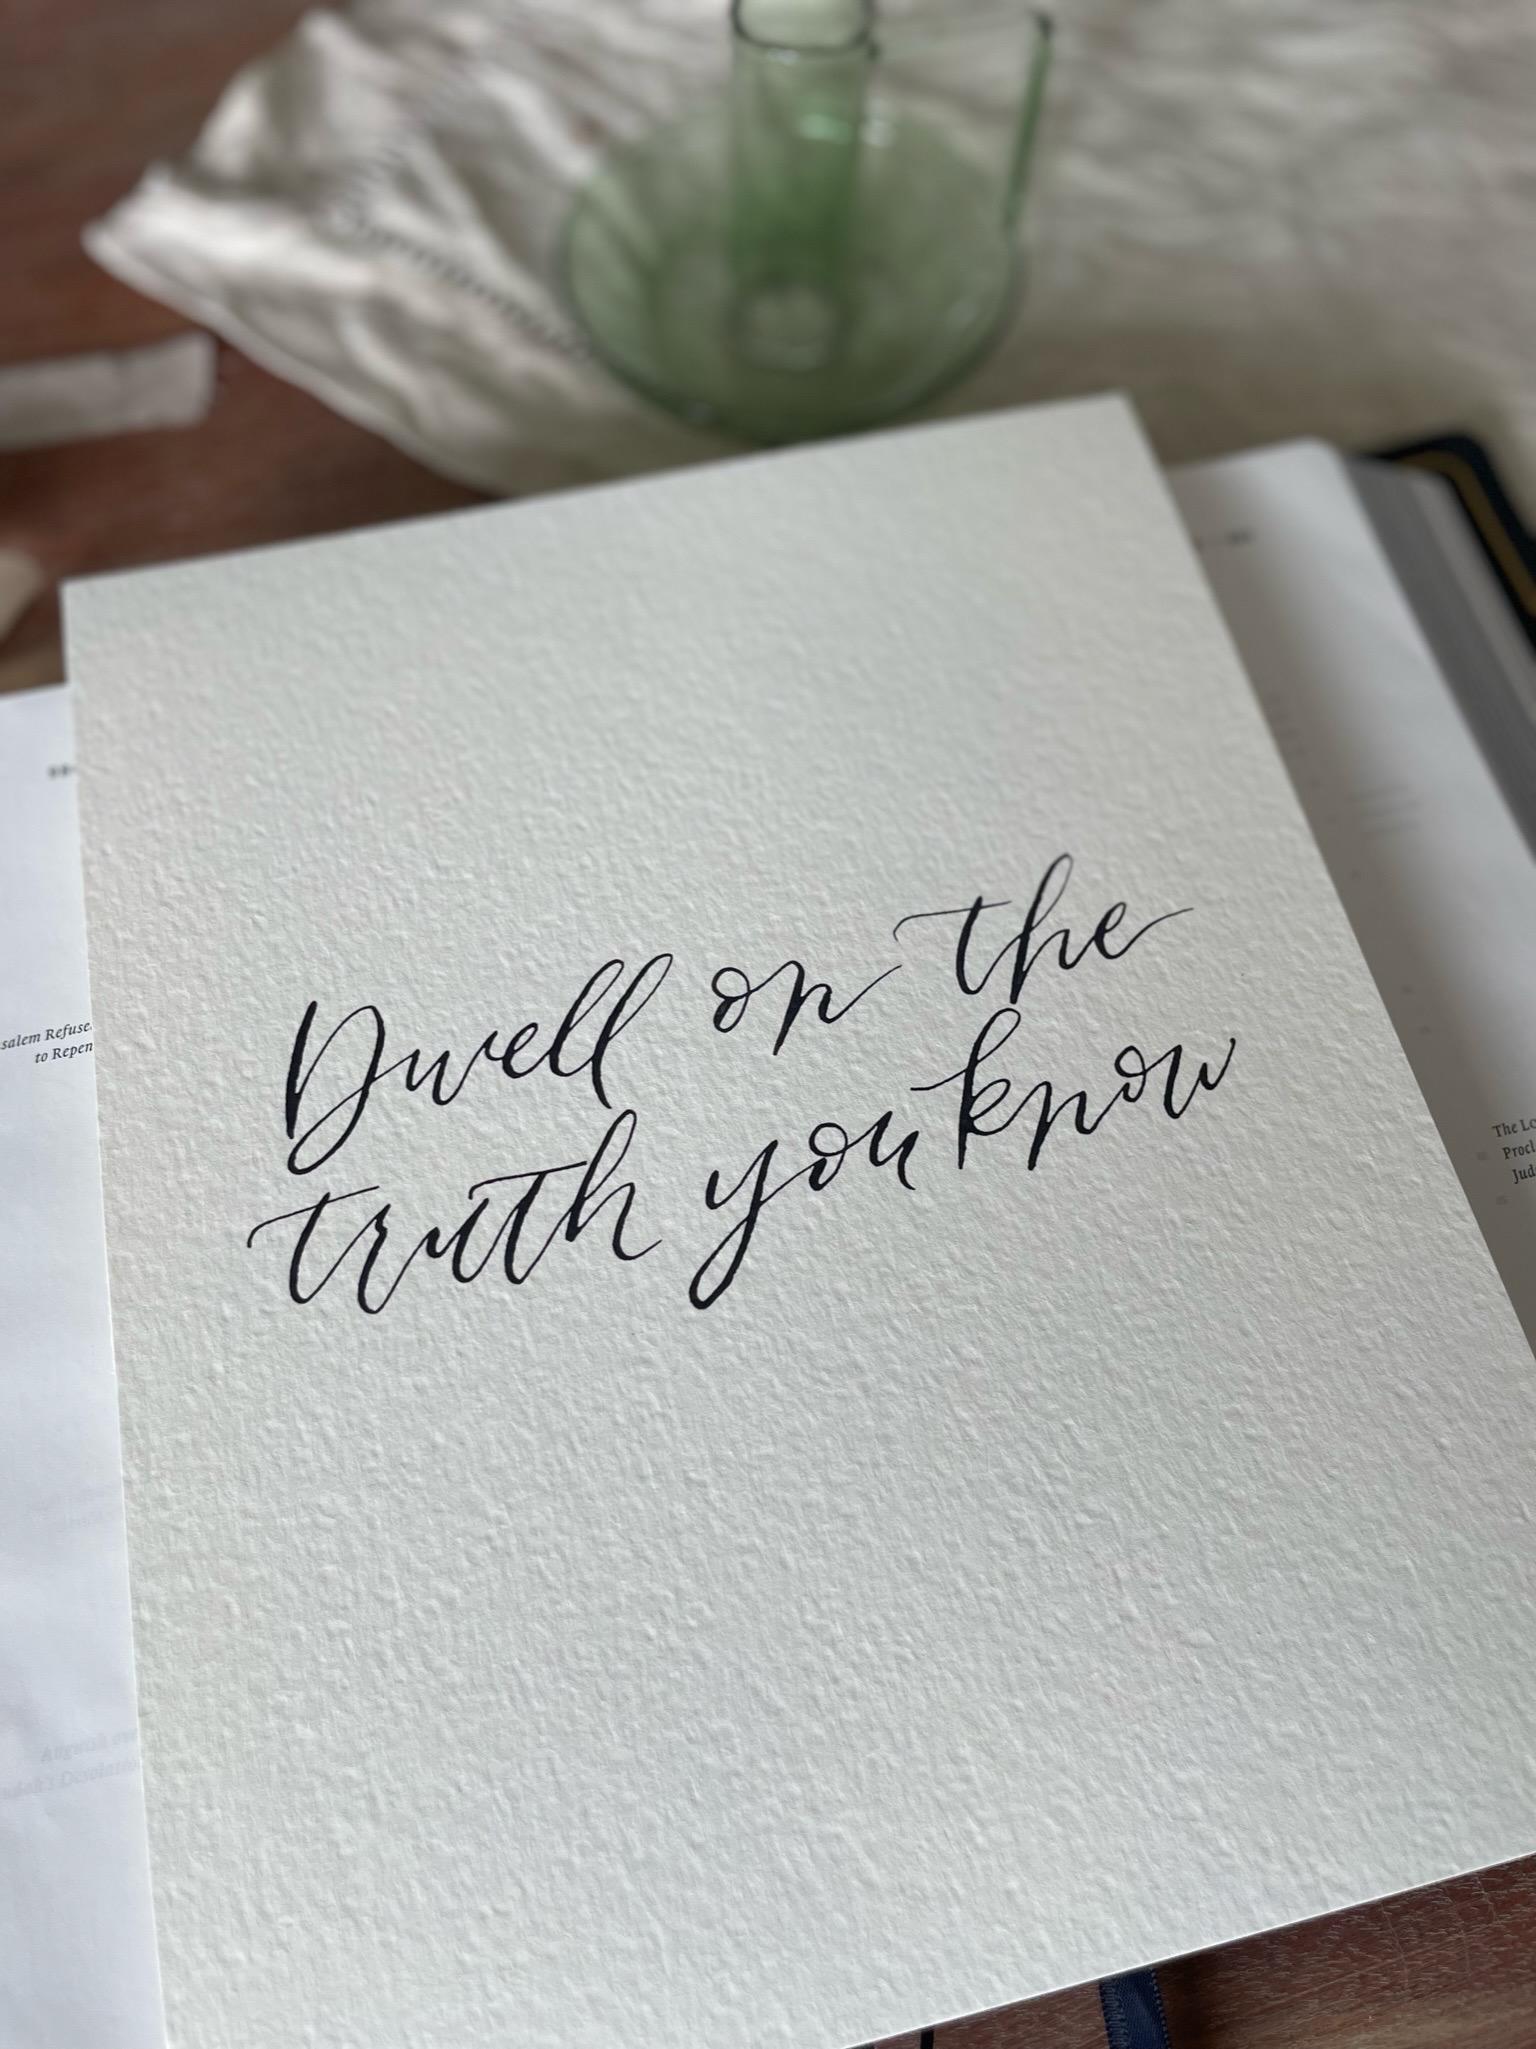 Dwell on the
truth you know
salem Refuse
to Repen
The Lo
Procl
Jud